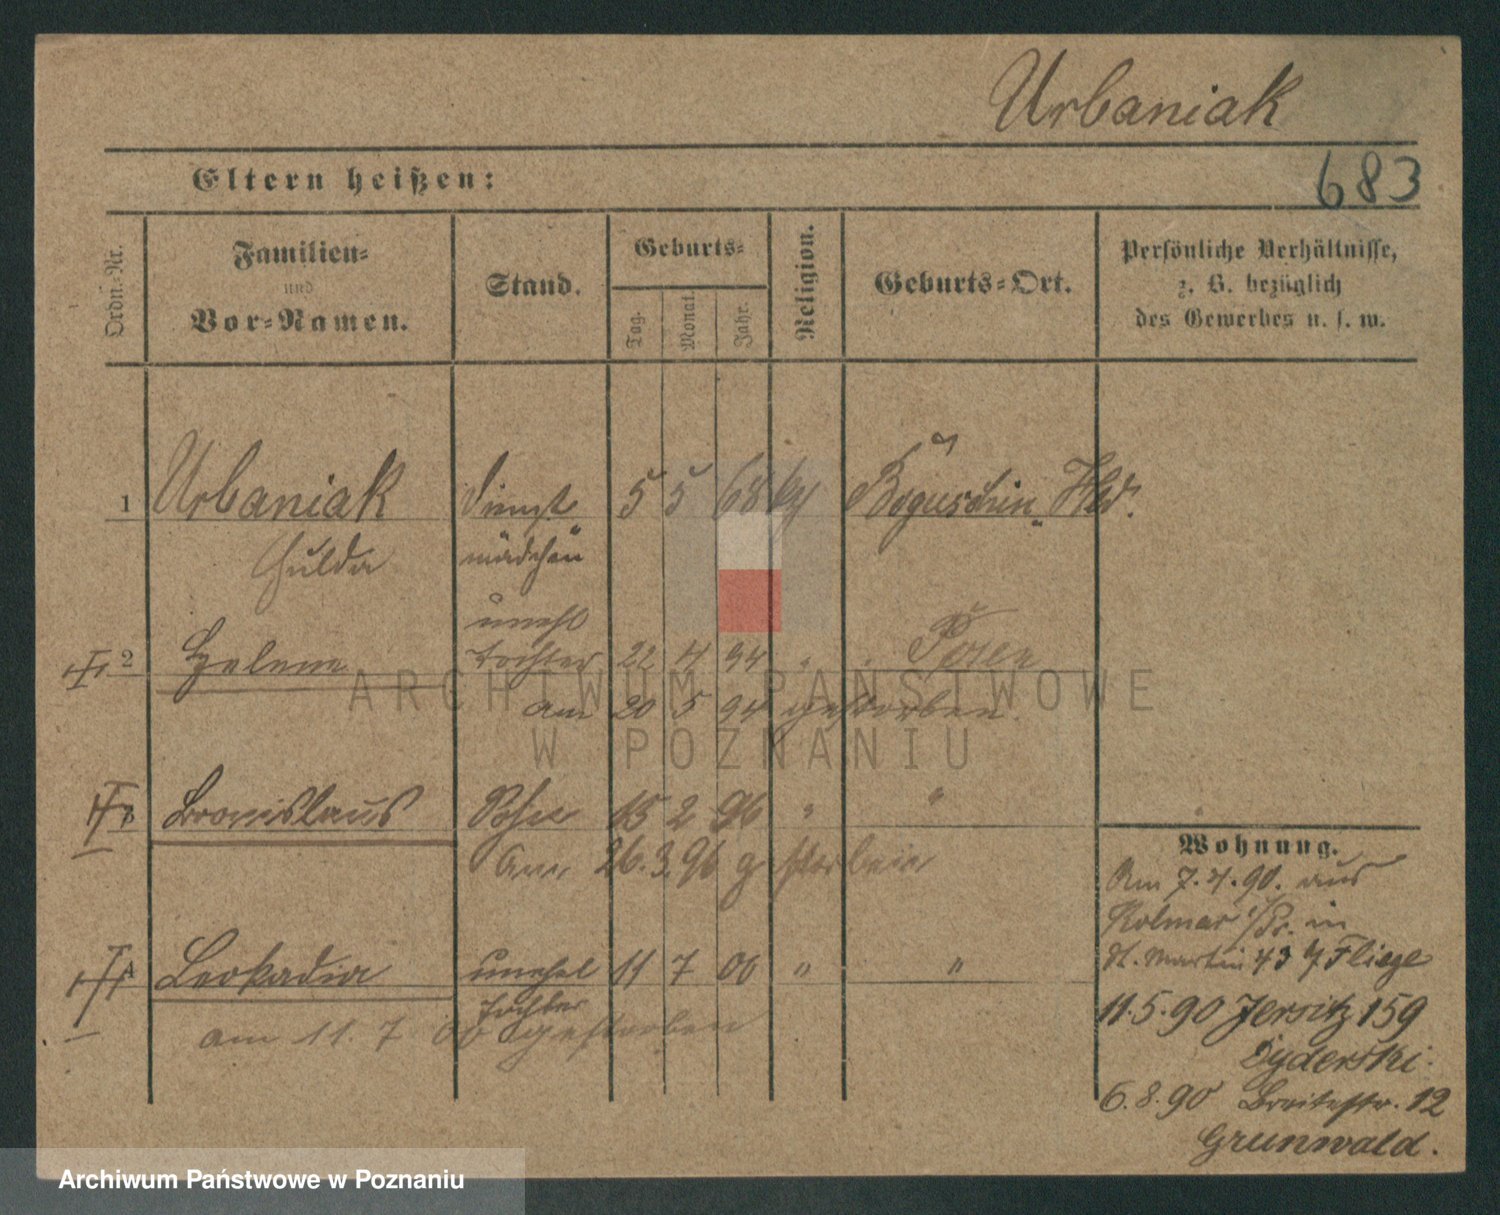 Urbaniak
Eltern heißen:
683
Ordn.-Nr.
Familien-
und
Vor-Namen.
Stand.
Geburts-
Tag.
Monat.
Jahr.
Religion.
Geburts-Ort.
Persönliche Verhältnisse,
z. B. bezüglich
des Gewerbes u. s. w.
1 Urbaniak Dienst 5 5 68 Boguschin Hld.
Hulda mädchen
unehl
2 Helene Tochter 22 4 94 " " Posen
am 20 5 94 gestorben.
3 Bronislaus Sohn 15 2 96 " "
Am 26.3.96 gestorben
4 Leokadia unehel 11 7 00 " "
Tochter
am 11. 7 00 gestorben
Wohnung.
Am 7.4.90. aus
Kolmar i/Pr. in
St. Martin 43 Fliege
11.5.90 Jersitz 159
Dyderski.
6.8.90 Breitestr. 12
Grunwald.
ARCHIWUM PAŃSTWOWE
W POZNANIU
Archiwum Państwowe w Poznaniu